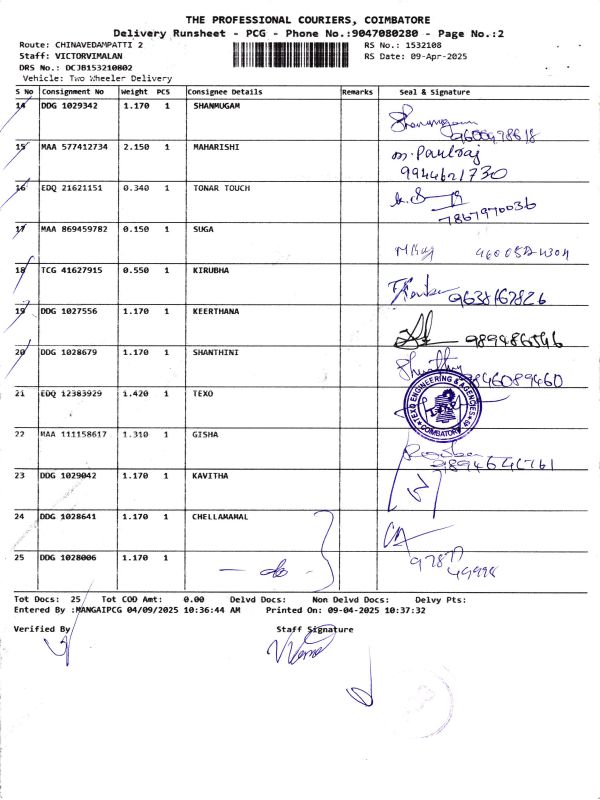 THE PROFESSIONAL COURIERS, COIMBATORE
Delivery Runsheet - PCG - Phone No.:9047080280 - Page No.:2
Route: CHINAVEDAMPATTI 2
Staff: VICTORVIMALAN
DRS No.: DCJB153210802
Vehicle: Two Wheeler Delivery
RS No.: 1532108
RS Date: 09-Apr-2025
S No Consignment No Weight PCS Consignee Details Remarks Seal & Signature
14 DDG 1029342 1.170 1 SHANMUGAM
15 MAA 577412734 2.150 1 MAHARISHI m. Paulraj
9944621730
16 EDQ 21621151 0.340 1 TONAR TOUCH
7867970036
17 MAA 869459782 0.150 1 SUGA
18 TCG 41627915 0.550 1 KIRUBHA
9638167826
19 DDG 1027556 1.170 1 KEERTHANA
20 DDG 1028679 1.170 1 SHANTHINI
9846089460
21 EDQ 12383929 1.420 1 TEXO TEXO ENGINEERING & AGENCIES
COIMBATORE
22 MAA 111158617 1.310 1 GISHA
23 DDG 1029042 1.170 1 KAVITHA
24 DDG 1028641 1.170 1 CHELLAMAMAL
25 DDG 1028006 1.170 1 - do -
Tot Docs: 25 Tot COD Amt: 0.00 Delvd Docs: Non Delvd Docs: Delvy Pts:
Entered By :MANGAIPCG 04/09/2025 10:36:44 AM Printed On: 09-04-2025 10:37:32
Verified By Staff Signature